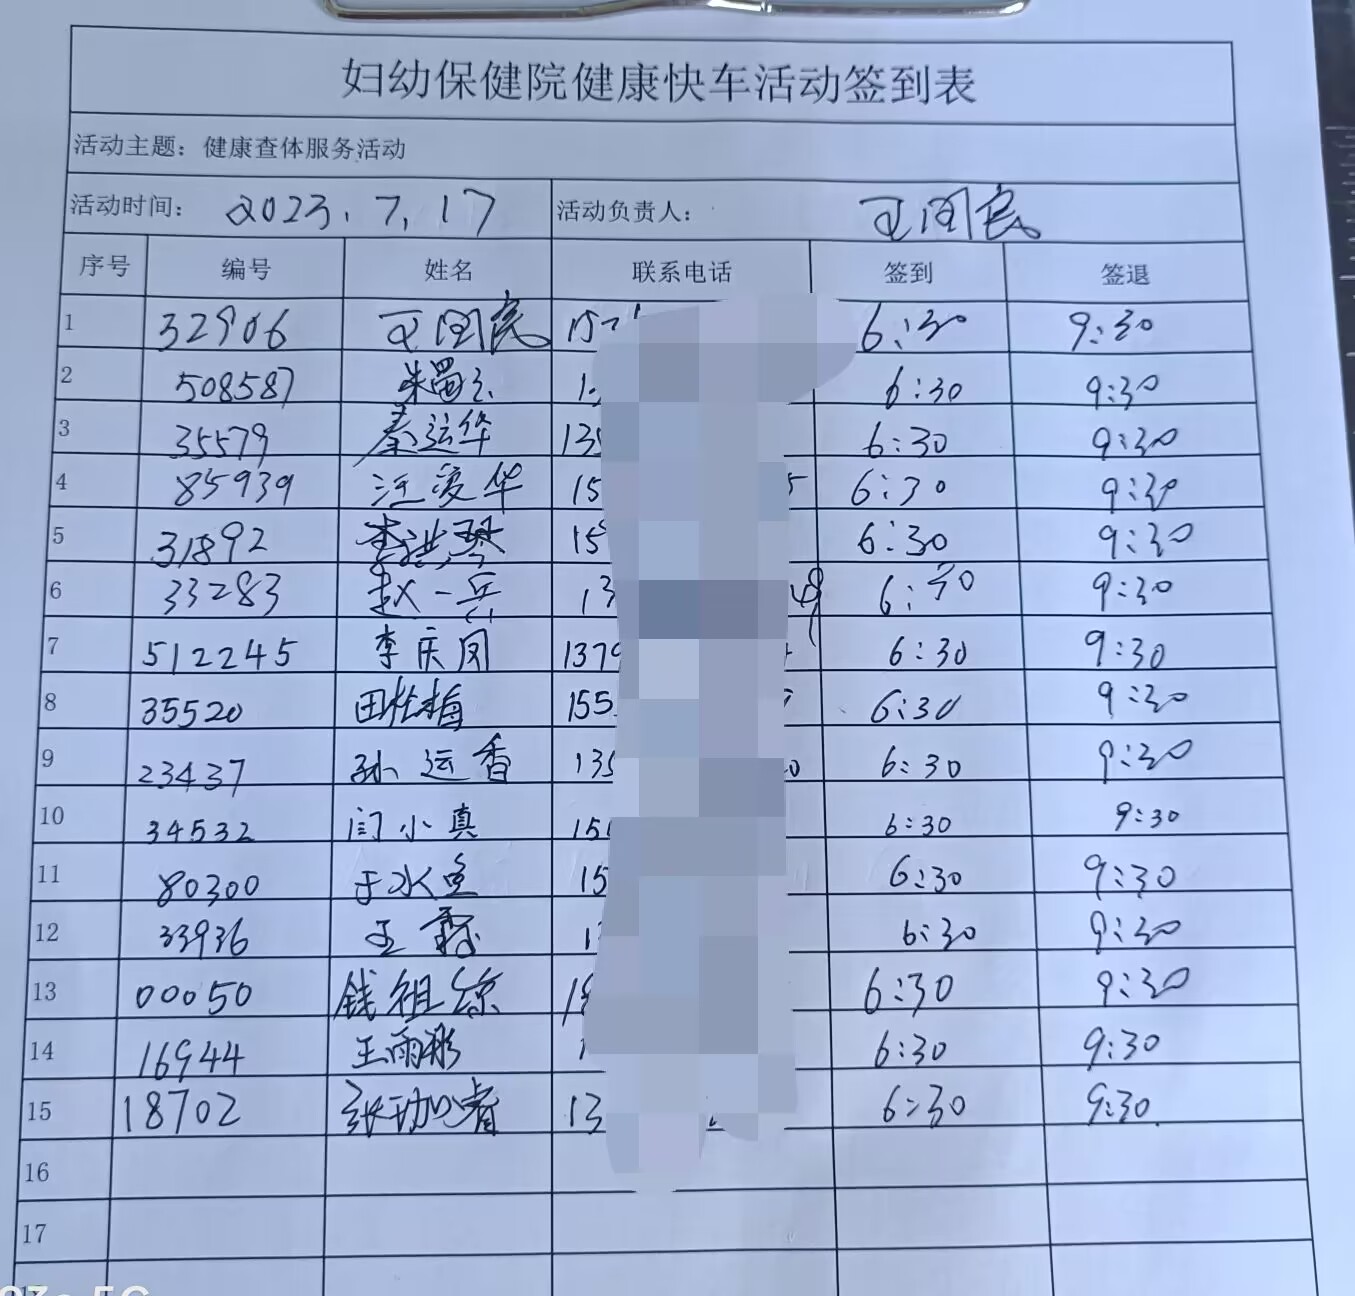 妇幼保健院健康快车活动签到表
活动主题：健康查体服务活动
活动时间： 2023.7.17 活动负责人： 王闰民
序号 编号 姓名 联系电话 签到 签退
1 32906 王闰民 152 6:30 9:30
2 508587 朱 1 6:30 9:30
3 35579 秦运华 135 6:30 9:30
4 85939 汪爱华 15 5 6:30 9:30
5 31892 李洪琴 15 6:30 9:30
6 33283 赵一兵 13 48 6:30 9:30
7 512245 李庆凤 1379 6:30 9:30
8 35520 田桂梅 155 6:30 9:30
9 23437 孙运香 135 0 6:30 9:30
10 34532 闫小真 150 6:30 9:30
11 80300 于水鱼 15 6:30 9:30
12 33936 王霞 1 6:30 9:30
13 00050 钱祖琼 15 6:30 9:30
14 16944 王雨彤 1 6:30 9:30
15 18702 张 13 6:30 9:30
16
17